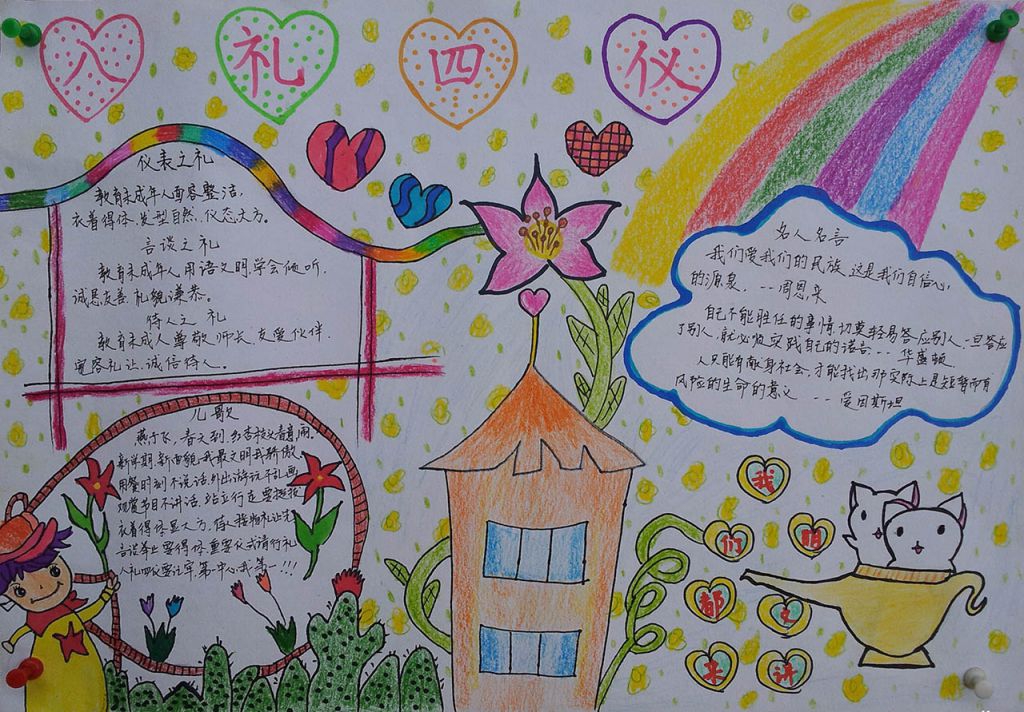 八礼四仪
仪表之礼
教育未成年人面容整洁,
衣着得体,发型自然,仪态大方。
言谈之礼
教育未成年人用语文明,学会倾听,
诚恳友善,礼貌谦恭。
待人之礼
教育未成人尊敬师长,友爱伙伴,
宽容礼让,诚信待人。
儿歌
燕子飞,春天到,红杏枝头春意闹。
新学期,新面貌,我最文明我骄傲
用餐时刻不说话,外出游玩不乱画
观赏节目不讲话,站立行走要挺拔
衣着得体显大方,待人接物礼让先
言谈举止要得体,重要仪式请行礼
八礼四仪要记牢,第一中心我第一!!!
名人名言
我们爱我们的民族,这是我们自信心
的源泉。--周恩来
自己不能胜任的事情,切莫轻易答应别人,一旦答应
了别人,就必须实践自己的诺言--华盛顿
人只能有献身社会,才能找出那实际上是短暂而有
风险的生命的意义 --爱因斯坦
我
们
都
来
讲